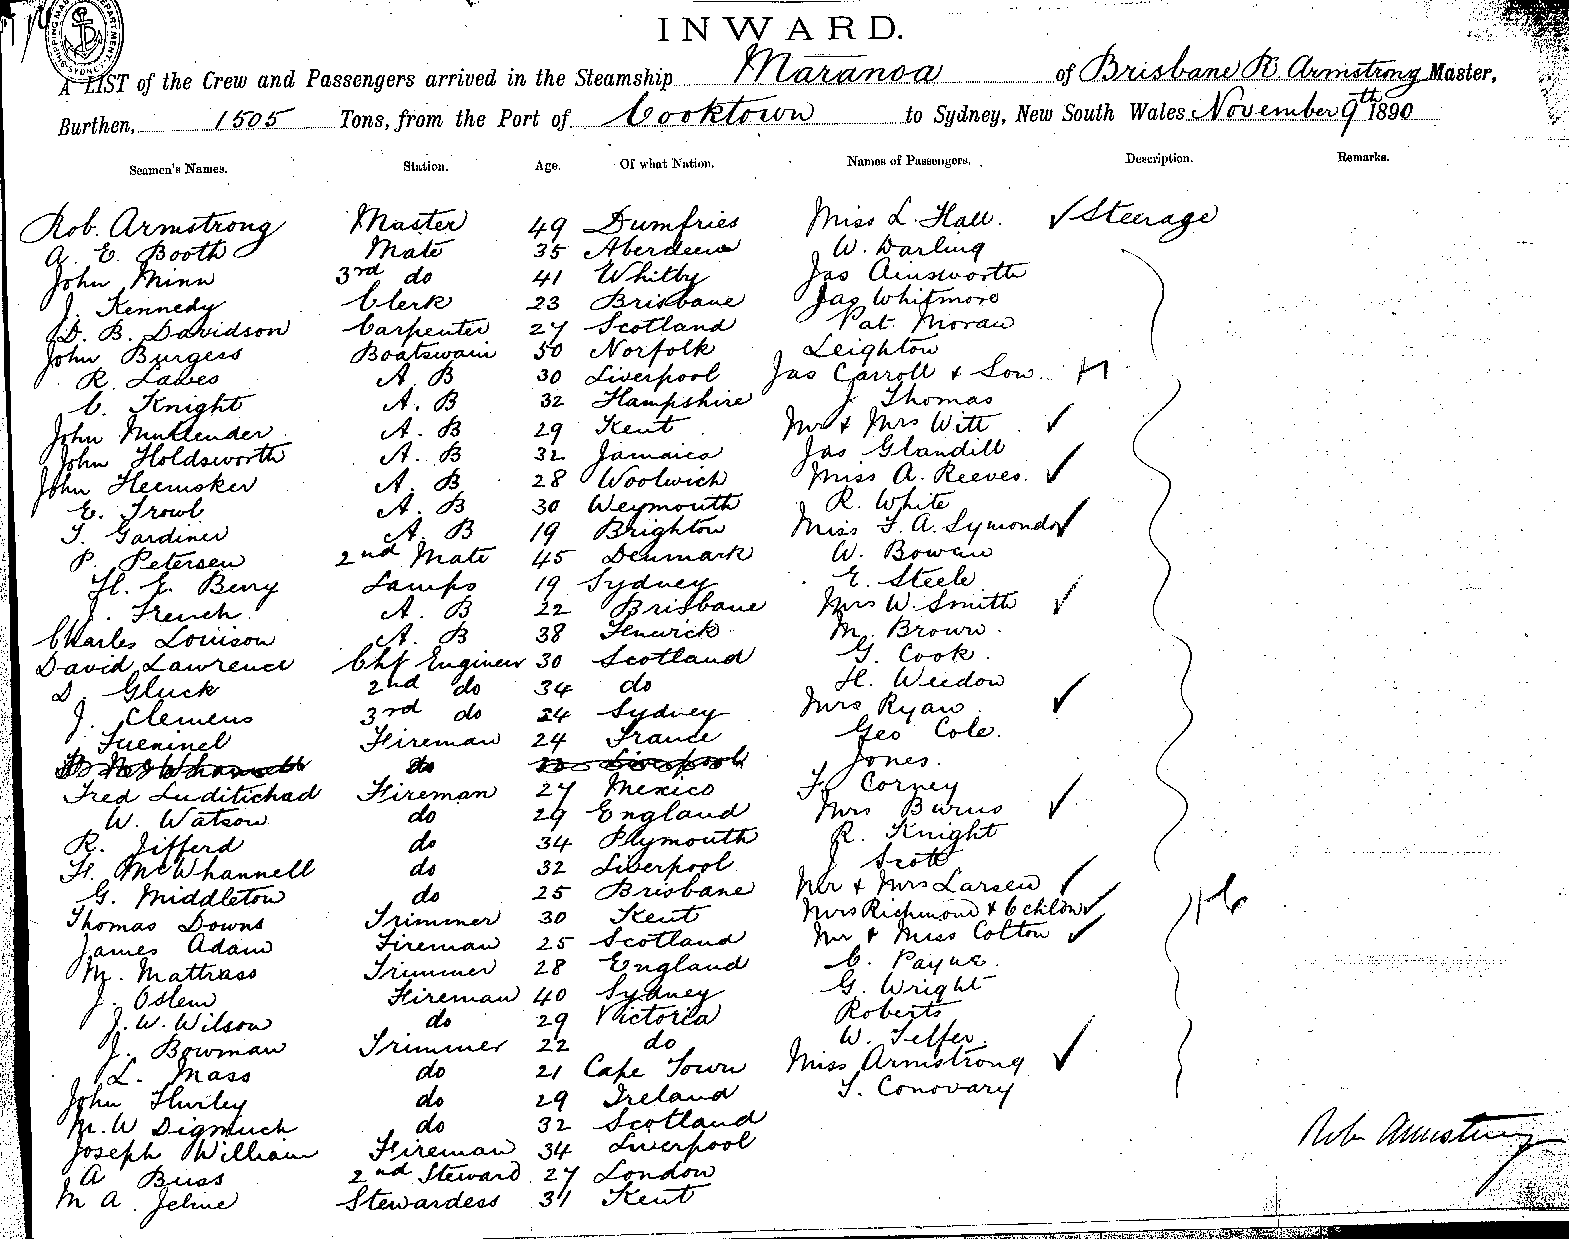 INWARD.
A LIST of the Crew and Passengers arrived in the Steamship Maranoa of Brisbane R. Armstrong Master,
Burthen, 1505 Tons, from the Port of Cooktown to Sydney, New South Wales November 9th 1890
Seamen's Names. Station. Age. Of what Nation. Names of Passengers. Description. Remarks.
Rob. Armstrong Master 49 Dumfries Miss L. Hall. ✓ Steerage
A. E. Booth Mate 35 Aberdeen W. Darling
John Minn 3rd do 41 Whitby Jas Ainsworth
J. Kennedy Clerk 23 Brisbane Jas Whitmore
D. B. Davidson Carpenter 27 Scotland Pat. Moran
John Burgess Boatswain 50 Norfolk Leighton
R. Lawes A. B 30 Liverpool Jas Carroll & Son
C. Knight A. B 32 Hampshire J. Thomas
John Mullender A. B 29 Kent Mr & Mrs Witt ✓
John Holdsworth A. B 32 Jamaica Jas Glandill
John Heemsker A. B 28 Woolwich Miss A. Reeves. ✓
E. Trowl A. B 30 Weymouth R. White
T. Gardiner A. B 19 Brighton Miss F. A. Symonds ✓
P. Petersen 2nd Mate 45 Denmark W. Bowen
H. E. Berry Lamps 19 Sydney E. Steele
J. French A. B 22 Brisbane Mrs W. Smith ✓
Charles Louison A. B 38 Fenwick M. Brown.
David Lawrence Chf Engineer 30 Scotland G. Cook.
D. Gluck 2nd do 34 do H. Weedon
J. Clemens 3rd do 24 Sydney Mrs Ryan ✓
Fireman 24 France Geo Cole.
do Liverpool Jones.
Fred Luditichad Fireman 27 Mexico F. Corney
W. Watson do 29 England Mrs Burns ✓
R. Jifferd do 34 Plymouth R. Knight
H. McWhannell do 32 Liverpool J Scott
G. Middleton do 25 Brisbane Mr & Mrs Larsen ✓
Thomas Downs Trimmer 30 Kent Mrs Richmond & 6 chldn ✓
James Adam Fireman 25 Scotland Mr & Miss Colton ✓
M. Mattrass Trimmer 28 England C. Payne.
J. Oslem Fireman 40 Sydney G. Wright
J. W. Wilson do 29 Victoria Roberts
J. Bowman Trimmer 22 do W. Telfer.
L. Mass do 21 Cape Town Miss Armstrong ✓
John Hurley do 29 Ireland T. Conovary
M. W Digmuch do 32 Scotland
Joseph William Fireman 34 Liverpool
A Buss 2nd Steward 27 London
M A. Jelme Stewardess 31 Kent
Rob Armstrong